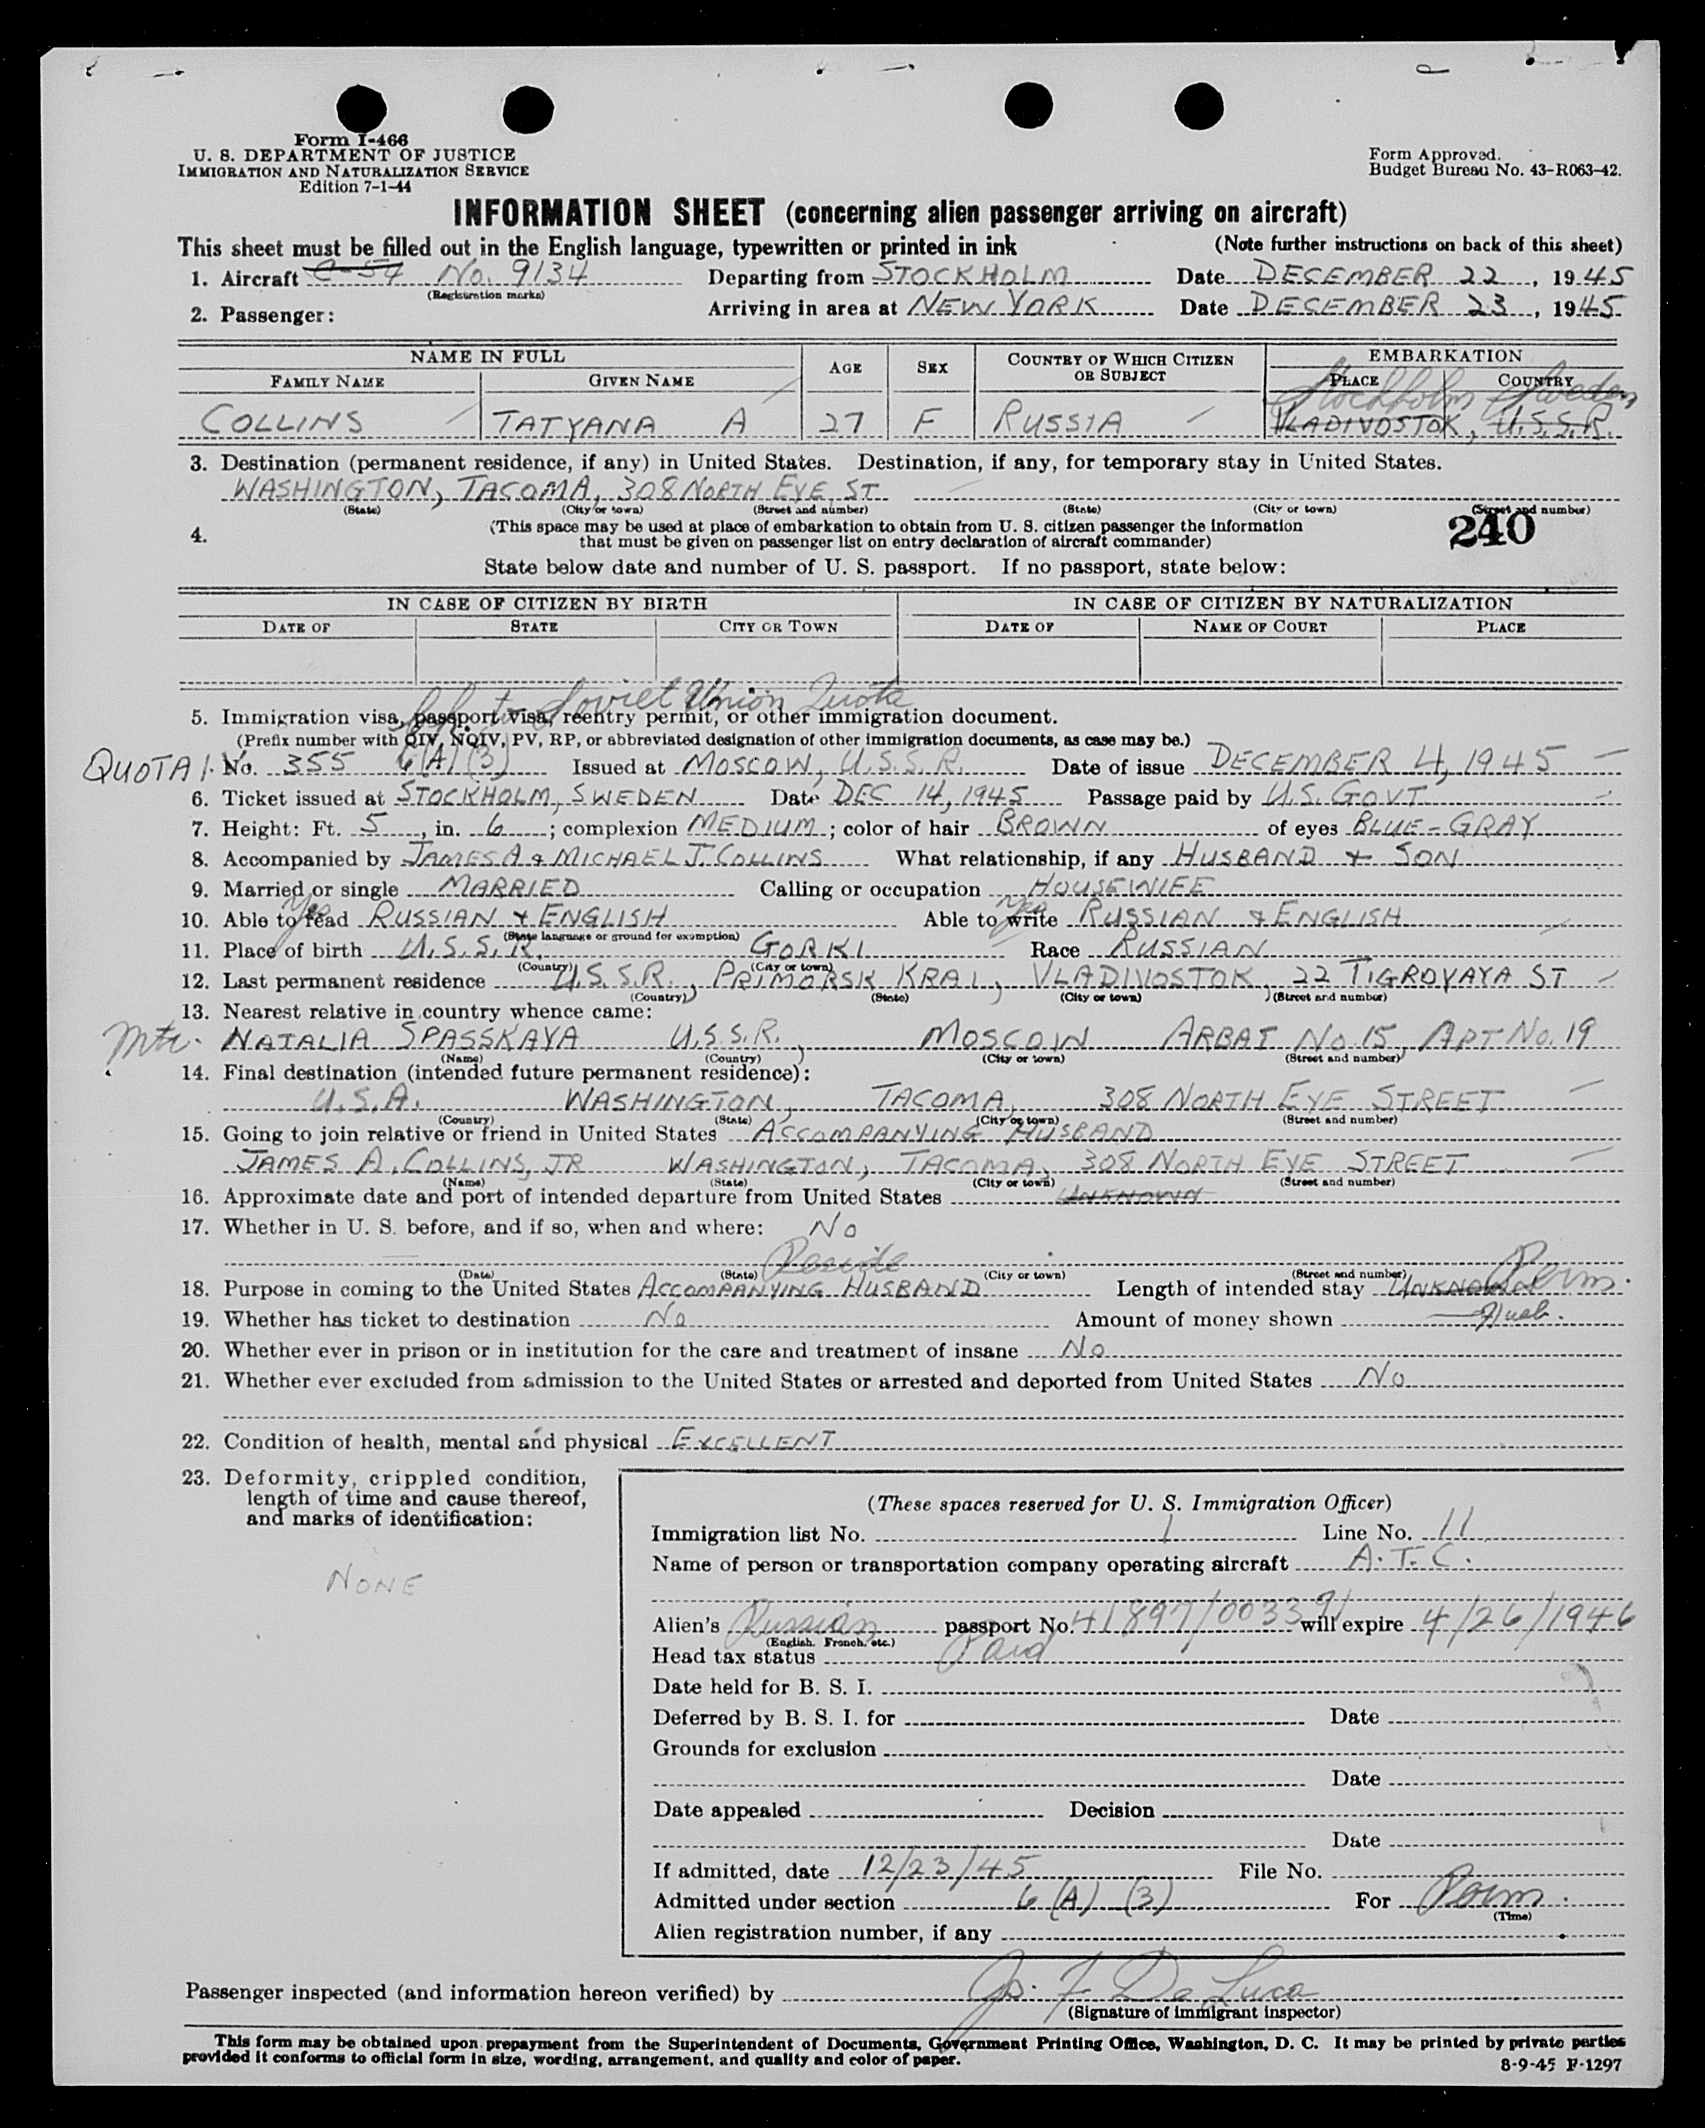 Form I-466
U. S. DEPARTMENT OF JUSTICE
IMMIGRATION AND NATURALIZATION SERVICE
Edition 7-1-44
Form Approved.
Budget Bureau No. 43-R063-42.
INFORMATION SHEET (concerning alien passenger arriving on aircraft)
This sheet must be filled out in the English language, typewritten or printed in ink (Note further instructions on back of this sheet)
1. Aircraft C-54 No. 9134 Departing from STOCKHOLM Date DECEMBER 22, 1945
(Registration marks)
2. Passenger: Arriving in area at NEW YORK Date DECEMBER 23, 1945
NAME IN FULL AGE SEX COUNTRY OF WHICH CITIZEN OR SUBJECT EMBARKATION
FAMILY NAME GIVEN NAME PLACE COUNTRY
Stockholm Sweden
COLLINS TATYANA A 27 F RUSSIA VLADIVOSTOK, U.S.S.R.
3. Destination (permanent residence, if any) in United States. Destination, if any, for temporary stay in United States.
WASHINGTON, TACOMA, 308 NORTH EYE ST
(State) (City or town) (Street and number) (State) (City or town) (Street and number)
4. (This space may be used at place of embarkation to obtain from U. S. citizen passenger the information
that must be given on passenger list on entry declaration of aircraft commander)
240
State below date and number of U. S. passport. If no passport, state below:
IN CASE OF CITIZEN BY BIRTH IN CASE OF CITIZEN BY NATURALIZATION
DATE OF STATE CITY OR TOWN DATE OF NAME OF COURT PLACE
to Soviet Union Quota
5. Immigration visa, passport visa, reentry permit, or other immigration document.
(Prefix number with QIV, NQIV, PV, RP, or abbreviated designation of other immigration documents, as case may be.)
QUOTA I. V. No. 355 6(A)(3) Issued at MOSCOW, U.S.S.R. Date of issue DECEMBER 4, 1945
6. Ticket issued at STOCKHOLM, SWEDEN Date DEC 14, 1945 Passage paid by U.S. GOVT
7. Height: Ft. 5, in. 6; complexion MEDIUM; color of hair BROWN of eyes BLUE-GRAY
8. Accompanied by JAMES A & MICHAEL J. COLLINS What relationship, if any HUSBAND + SON
9. Married or single MARRIED Calling or occupation HOUSEWIFE
Yes Yes
10. Able to read RUSSIAN & ENGLISH Able to write RUSSIAN & ENGLISH
(State language or ground for exemption)
11. Place of birth U.S.S.R. GORKI Race RUSSIAN
(Country) (City or town)
12. Last permanent residence U.S.S.R., PRIMORSK KRAI, VLADIVOSTOK, 22 TIGROVAYA ST
(Country) (State) (City or town) (Street and number)
13. Nearest relative in country whence came:
Mtr. NATALIA SPASSKAYA U.S.S.R., MOSCOW ARBAT No. 15, APT No. 19
(Name) (Country) (City or town) (Street and number)
14. Final destination (intended future permanent residence):
U.S.A. WASHINGTON, TACOMA, 308 NORTH EYE STREET
(Country) (State) (City or town) (Street and number)
15. Going to join relative or friend in United States ACCOMPANYING HUSBAND
JAMES A. COLLINS, JR WASHINGTON, TACOMA, 308 NORTH EYE STREET
(Name) (State) (City or town) (Street and number)
16. Approximate date and port of intended departure from United States UNKNOWN
17. Whether in U. S. before, and if so, when and where: No
(Date) (State) (City or town) (Street and number)
Reside Perm.
18. Purpose in coming to the United States ACCOMPANYING HUSBAND Length of intended stay UNKNOWN
19. Whether has ticket to destination No Amount of money shown Husb.
20. Whether ever in prison or in institution for the care and treatment of insane No
21. Whether ever excluded from admission to the United States or arrested and deported from United States No
22. Condition of health, mental and physical EXCELLENT
23. Deformity, crippled condition,
length of time and cause thereof,
and marks of identification:
NONE
(These spaces reserved for U. S. Immigration Officer)
Immigration list No. 1 Line No. 11
Name of person or transportation company operating aircraft A.T.C.
Alien's Russian passport No. 41897/00339/ will expire 4/26/1946
(English, French, etc.)
Head tax status Paid
Date held for B. S. I.
Deferred by B. S. I. for Date
Grounds for exclusion
Date
Date appealed Decision
Date
If admitted, date 12/23/45 File No.
Admitted under section 6(A)(3) For Perm.
(Time)
Alien registration number, if any
Passenger inspected (and information hereon verified) by Jos. F. De Luca
(Signature of immigrant inspector)
This form may be obtained upon prepayment from the Superintendent of Documents, Government Printing Office, Washington, D. C. It may be printed by private parties
provided it conforms to official form in size, wording, arrangement, and quality and color of paper.
8-9-45 F-1297